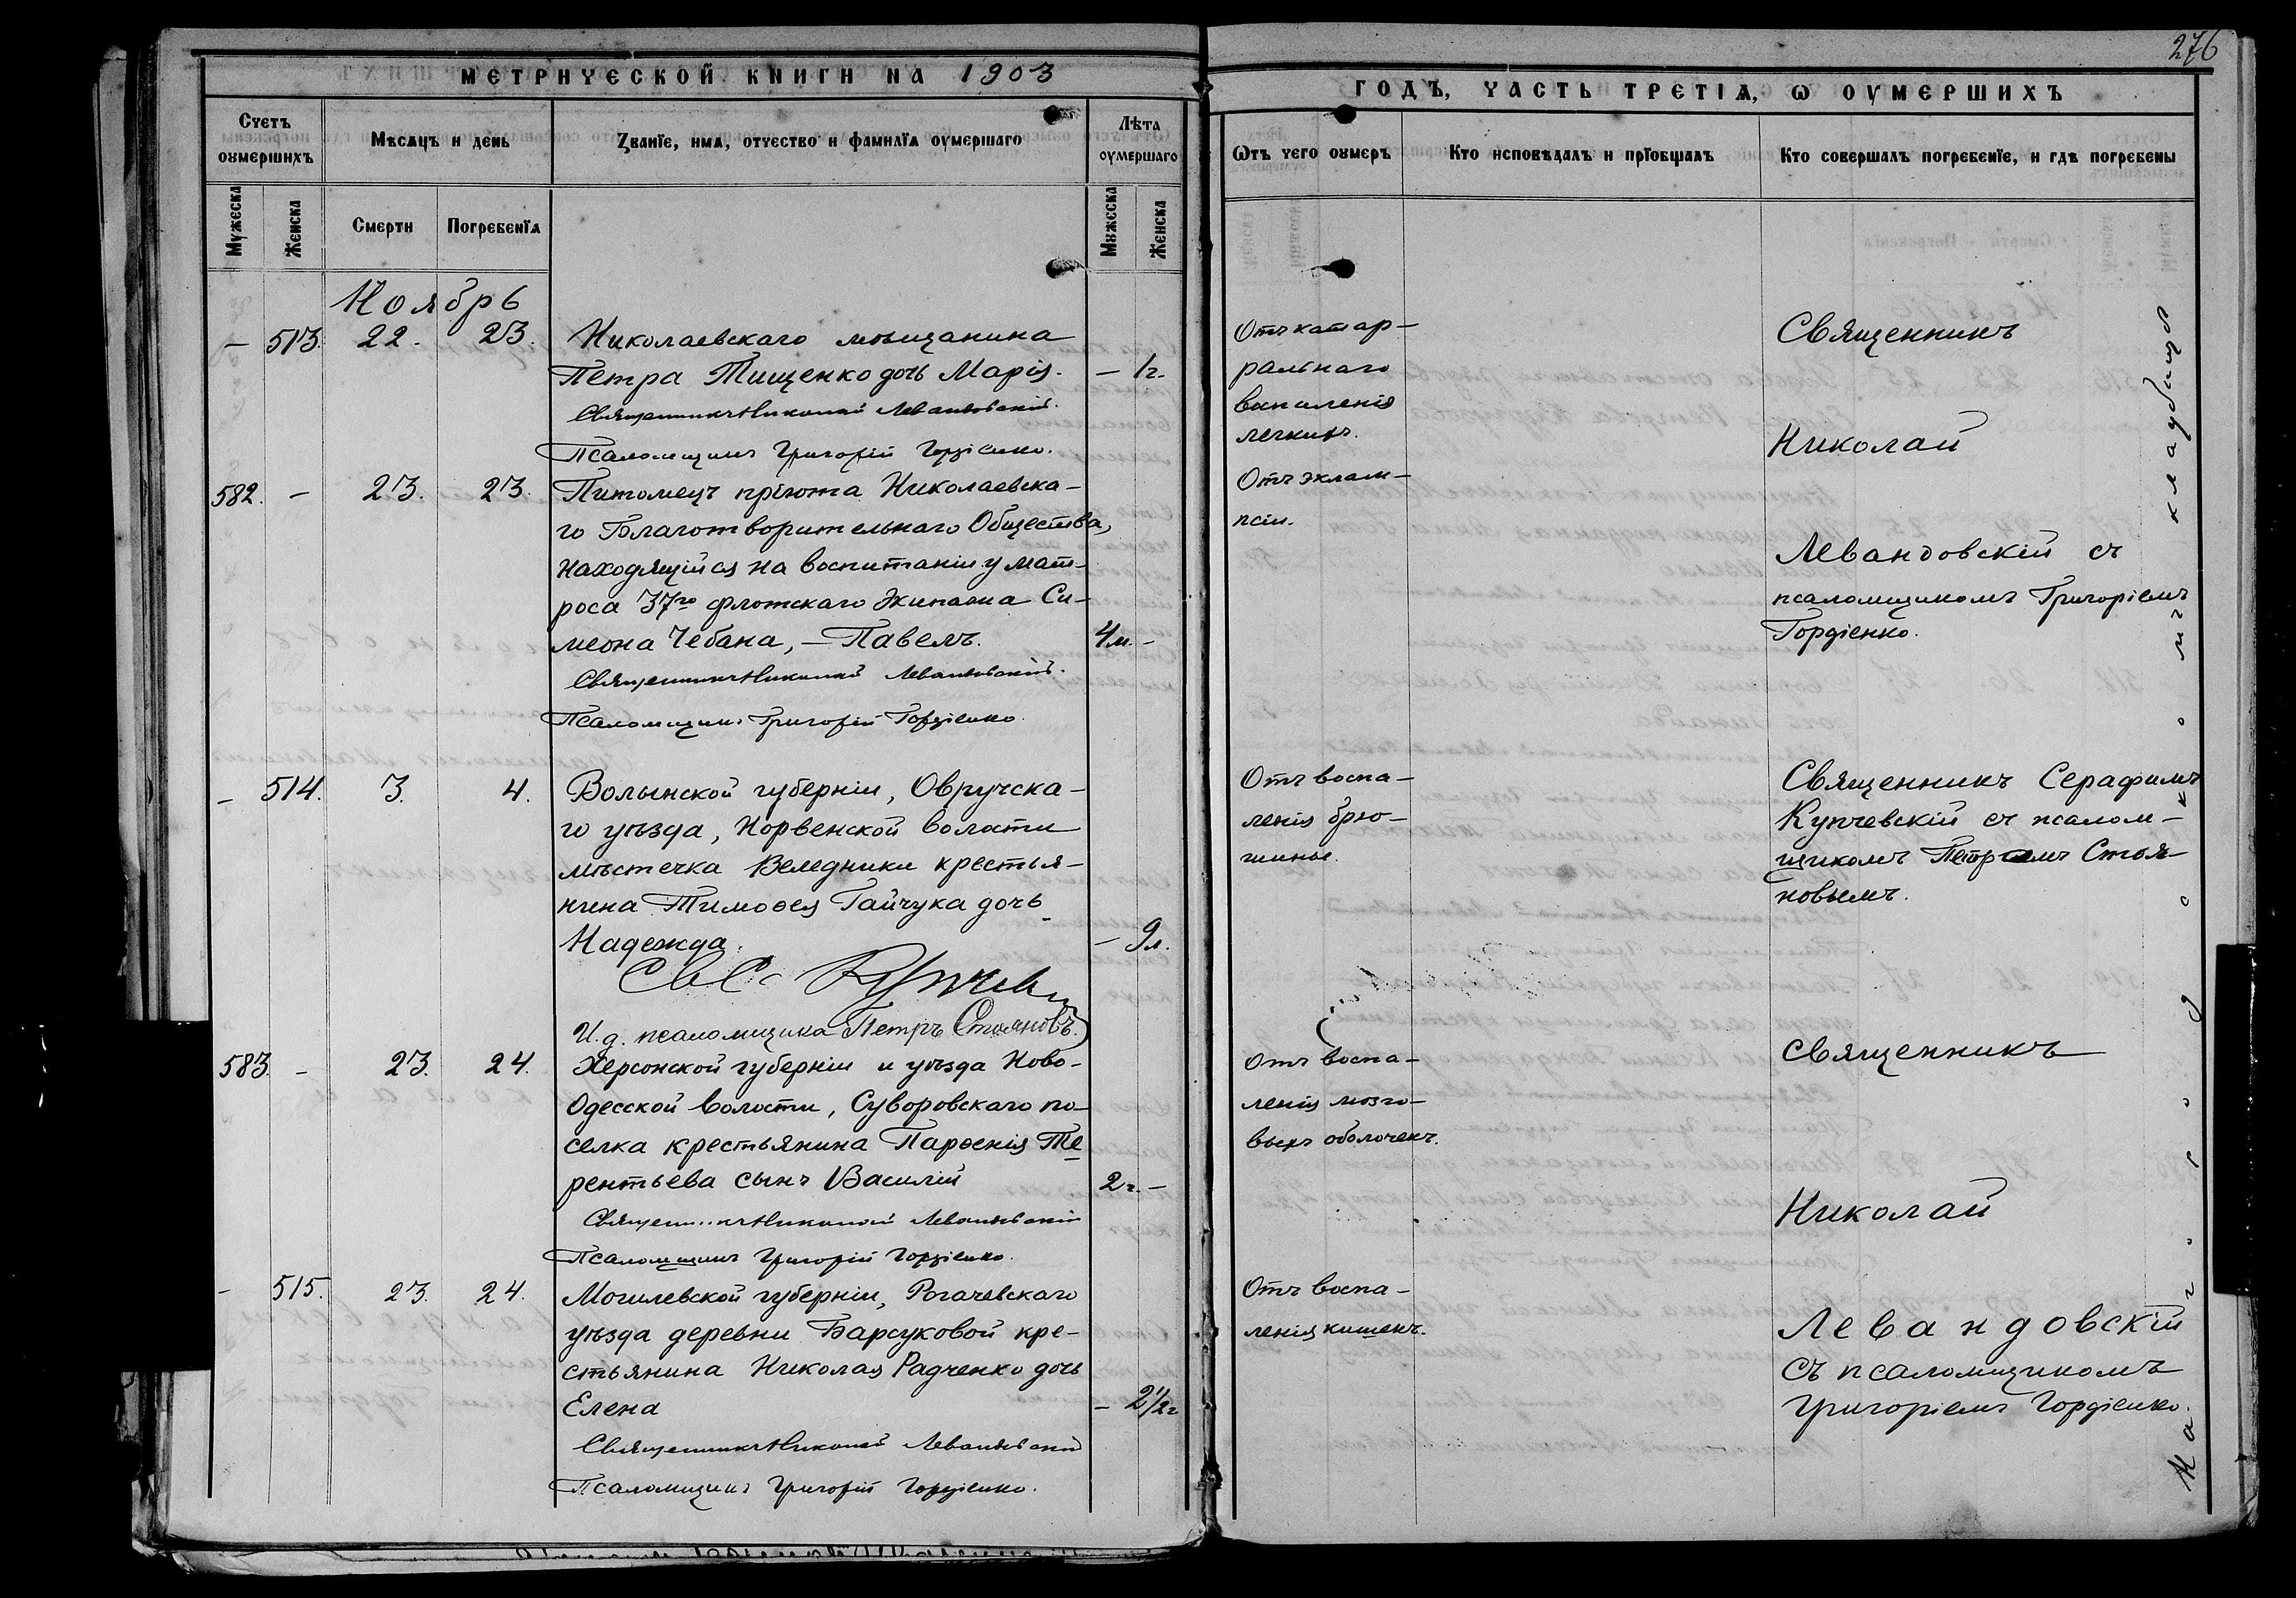 276
МЕТРИЧЕСКОЙ КНИГИ НА 1903
ГОДЪ, ЧАСТЬ ТРЕТІѦ, Ѡ ОУМЕРШИХЪ
Счетъ оумершихъ
Мѣсѧцъ и день
Званїе, имѧ, отчество и фамилїѧ оумершаго
Лѣта оумершаго
Ѿтъ чего оумеръ
Кто исповѣдалъ и прїобщалъ
Кто совершалъ погребенїе, и гдѣ погребены
Мужеска
Женска
Смерти
Погребенїѧ
Мужеска
Женска
Ноябрь
— 513. 22. 23. Николаевскаго мѣщанина
Петра Тищенко дочь Марія. — 1г.
Священникъ Николай Левандовскій.
Псаломщикъ Григорій Гордіенко.
Отъ катар-
ральнаго
воспаленія
легкихъ.
582. — 23. 23. Питомецъ пріюта Николаевска-
го Благотворительнаго Общества,
находящійся на воспитаніи у мат-
роса 37го флотскаго Экипажа Си-
меона Чебана, — Павелъ. 4м. -
Священникъ Николай Левандовскій.
Псаломщикъ Григорій Гордіенко.
Отъ эклам-
псіи.
Священникъ
Николай
Левандовскій съ
псаломщикомъ Григоріемъ
Гордіенко.
— 514. 3. 4. Волынской губерніи, Овручска-
го уѣзда, Норвенской волости
мѣстечка Веледники крестья-
нина Тимоѳея Гайчука дочь
Надежда. — 9л.
Св С. Купчев
И. д. псаломщика Петръ Стояновъ.
Отъ воспа-
ленія брю-
шины.
Священникъ Серафимъ
Купчевскій съ псалом-
щикомъ Петромъ Стоя-
новымъ.
583. - 23. 24. Херсонской губерніи и уѣзда Ново-
Одесской волости, Суворовскаго по-
селка крестьянина Парѳенія Те-
рентьева сынъ Василій 2г. -
Священникъ Николай Левандовскій
Псаломщикъ Григорій Гордіенко.
Отъ воспа-
ленія мозго-
выхъ оболочекъ.
- 515. 23. 24. Могилевской губерніи, Рогачевскаго
уѣзда деревни Барсуковой кре-
стьянина Николая Радченко дочь
Елена — 2½г
Священникъ Николай Левандовскій
Псаломщикъ Григорій Гордіенко.
Отъ воспа-
ленія кишекъ.
Священникъ
Николай
Левандовскій
съ псаломщикомъ
Григоріемъ Гордіенко.
На городскомъ кладбищѣ